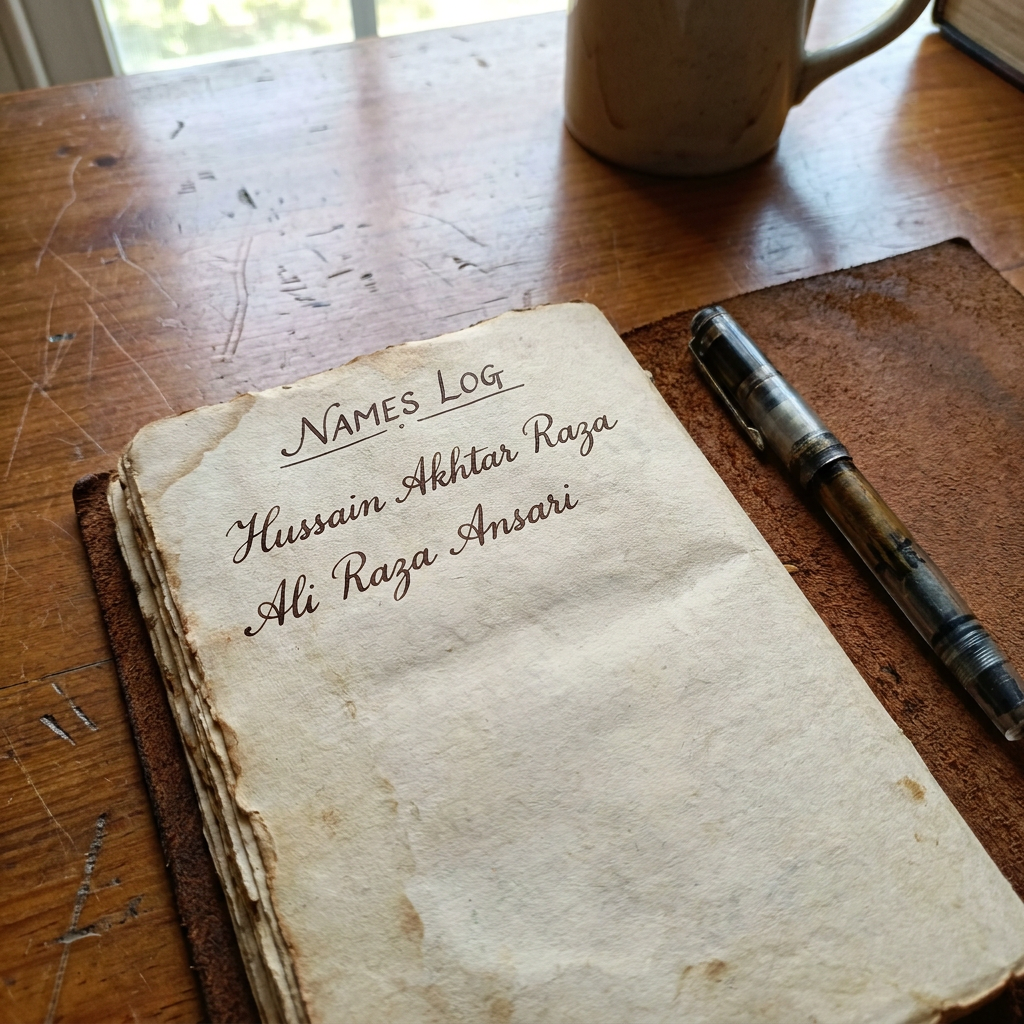 NAMES LOG
Hussain Akhtar Raza
Ali Raza Ansari